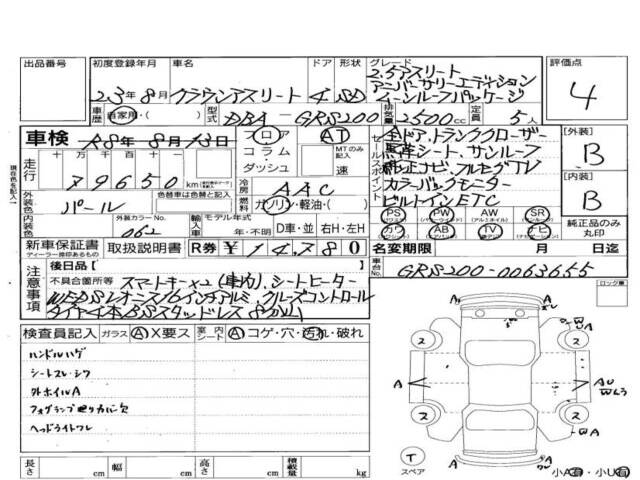 出品番号
初度登録年月 車名 ドア 形状 グレード 評価点
23年8月 クラウンアスリート 4 SD
2.5アスリート
アニバーサリーエディション
サンルーフパッケージ
4
車歴 自家用・( ) 型式 DBA-GRS200 排気量 2500cc 定員 5人
車検 R8年8月13日
フロア AT
コラム・ダッシュ
MTのみ記入
速
走行 十万 万 千 百 十 一
79650 km
セールスポイント
4ドア,トランククローザー
黒革シート、サンルーフ
純正ナビ,フルセグTV
カラーバックモニター
ビルトインETC
【外装】
B
【内装】
B
現在色を記入
外装色 パール
色替車は色替と記入
冷房 AAC
燃料 ガソリン・軽油・( )
内装色
外装カラーNo.
062
輸入車 モデル年式 年・不明 D車・並 右H・左H
PS (パワーステアリング) PW (パワーウインドウ) AW (アルミホイル) SR (サンルーフ)
カワ AB (エアバッグ) TV ナビ
純正品のみ丸印
新車保証書 取扱説明書 R券 ¥14,780
ディーラー捺印あるもの
名変期限 月 日迄
後日品【 】
車台No. GRS200-0063655
注意事項
不具合箇所等 スマートキー×2(車内),シートヒーター
WEDSレオニス16インチアルミ,クルーズコントロール
タイヤ4本BSスタッドレス8分山
ロック車
検査員記入 ガラス A X要ス 室内シート A コゲ・穴・汚れ・破れ
ハンドルハゲ
シートスレ・シワ
外ホイルA
フォグランプ廻りカバー欠
ヘッドライトワレ
A
A
2
2
2
2
A
A
AU
T
スペア
小A有・小U有
長さ cm 幅 cm 高さ cm 積載量 kg